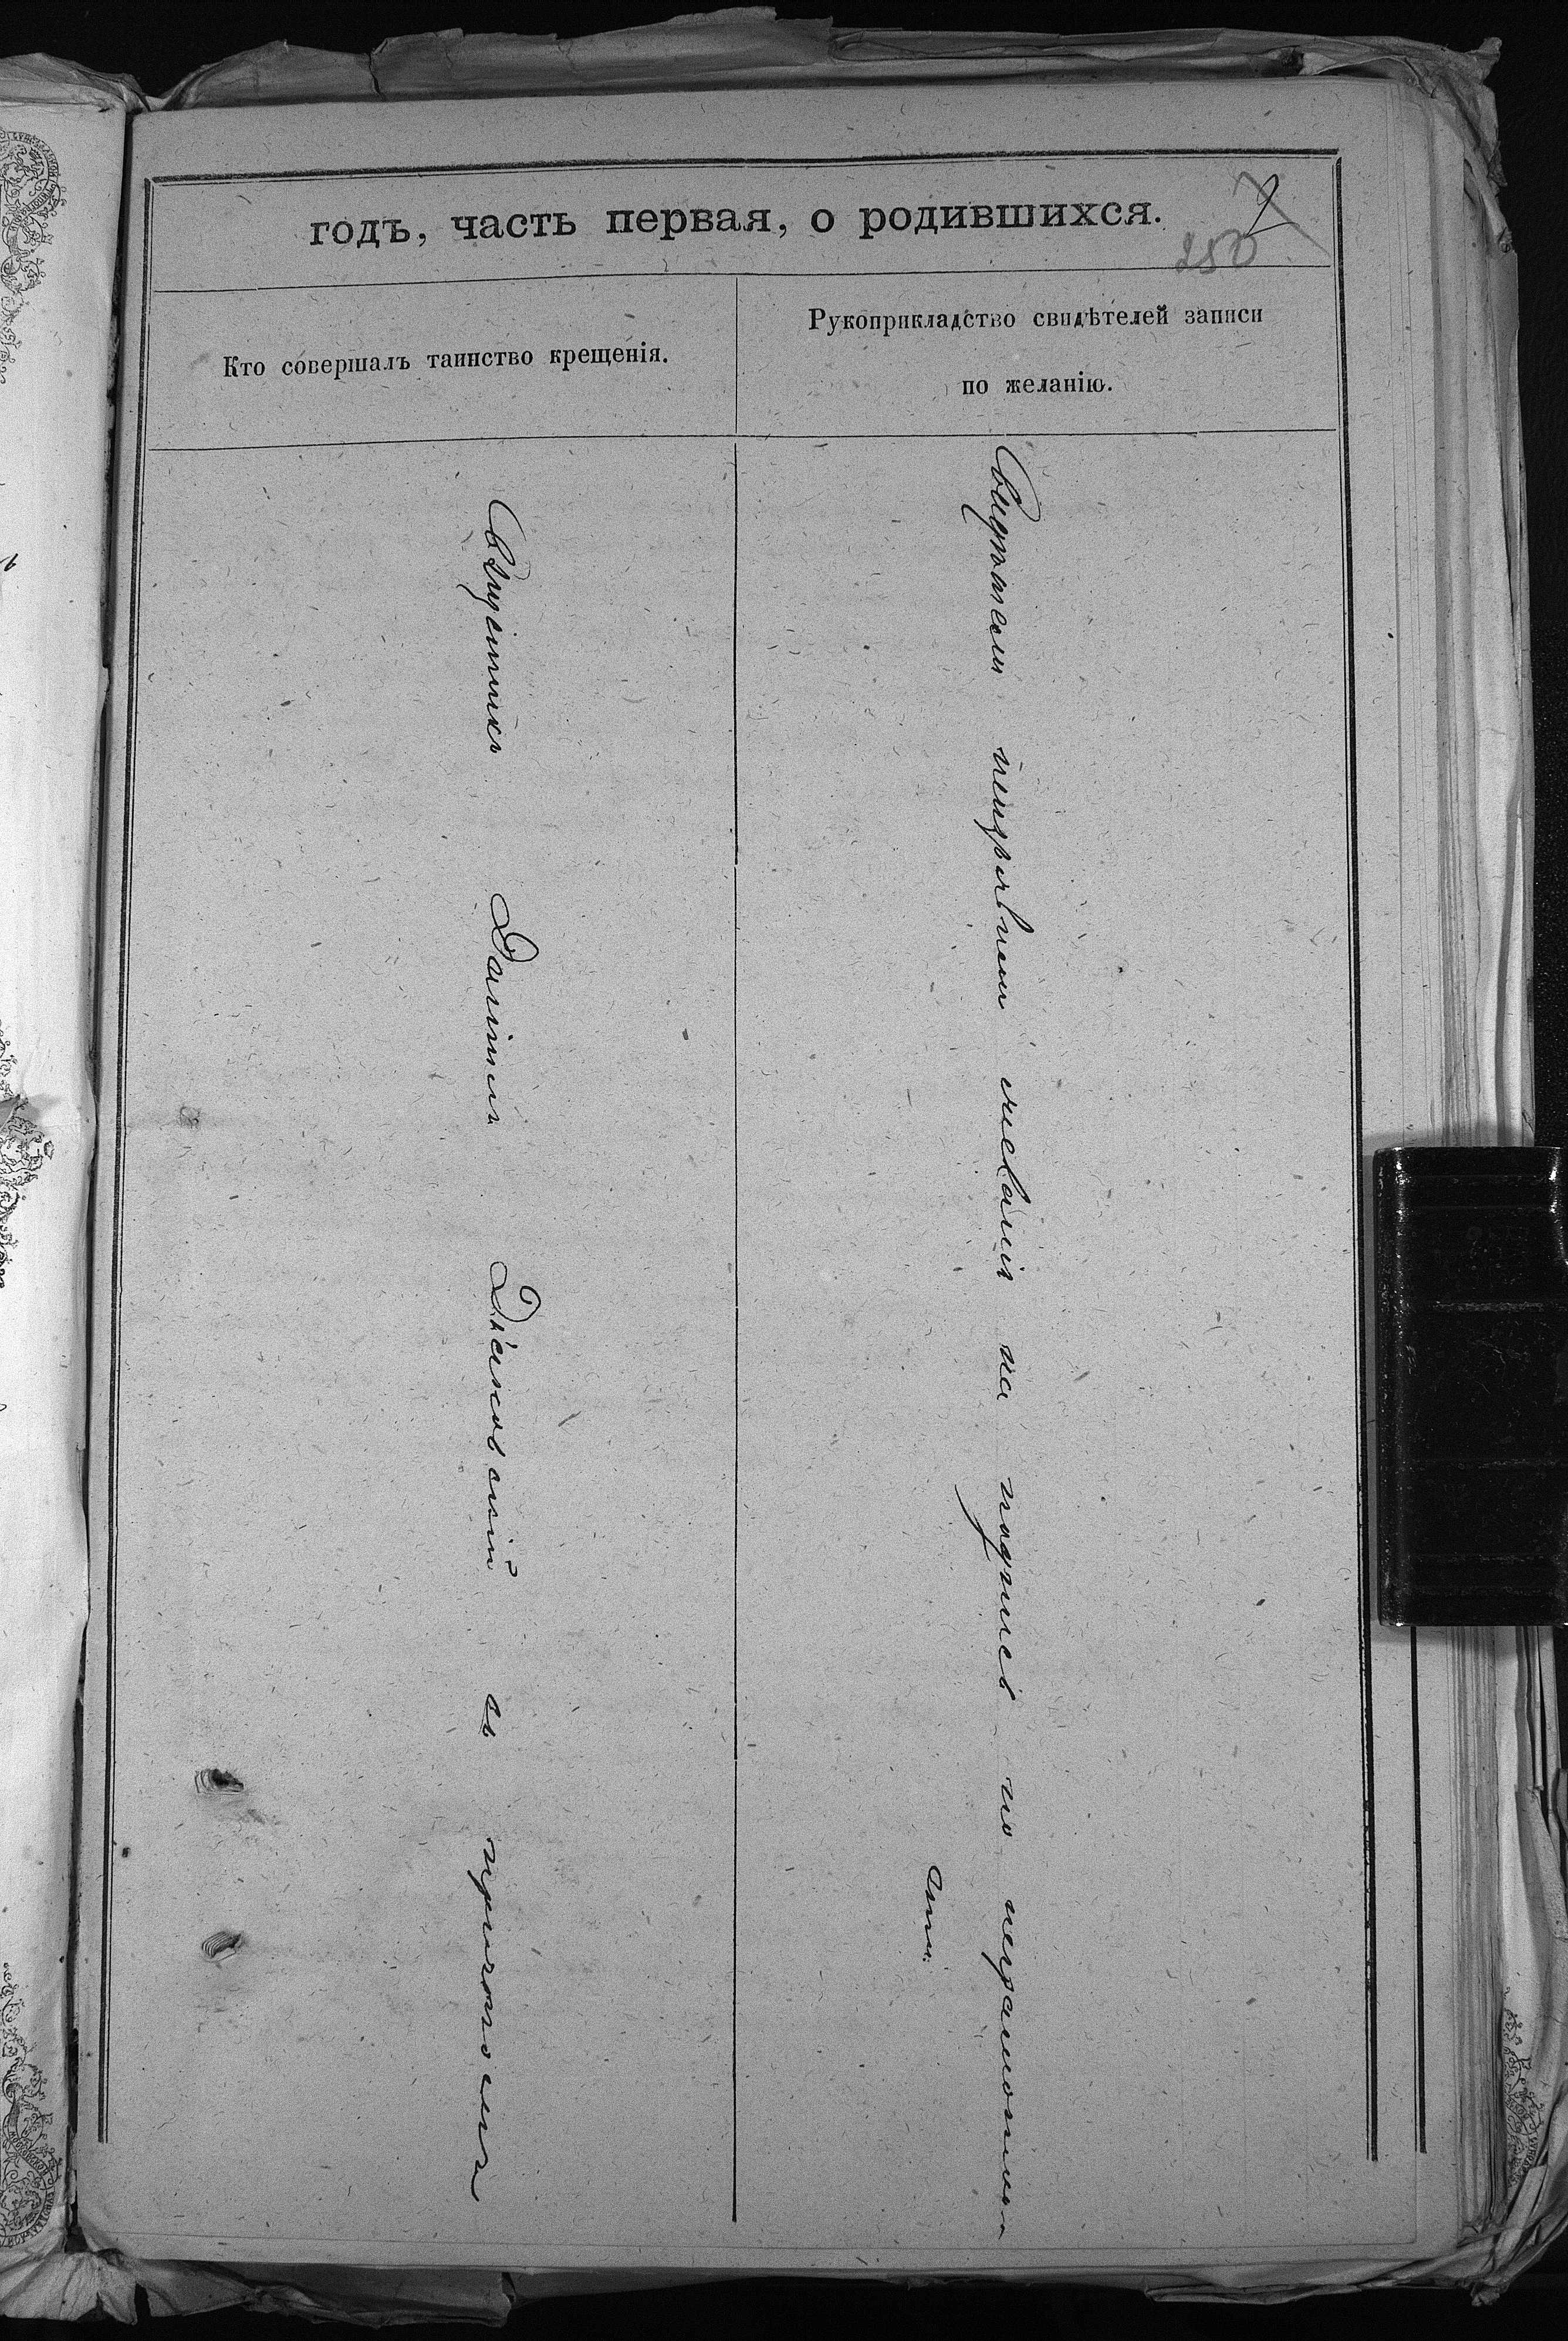 годъ, часть первая, о родившихся.
250
Кто совершалъ таинство крещенія.
Рукоприкладство свидѣтелей записи
по желанію.
Священникъ Даніилъ Діаковскій съ причтомъ
Свидѣтели неизъявили желанія на подпись по неграмотно
сти.